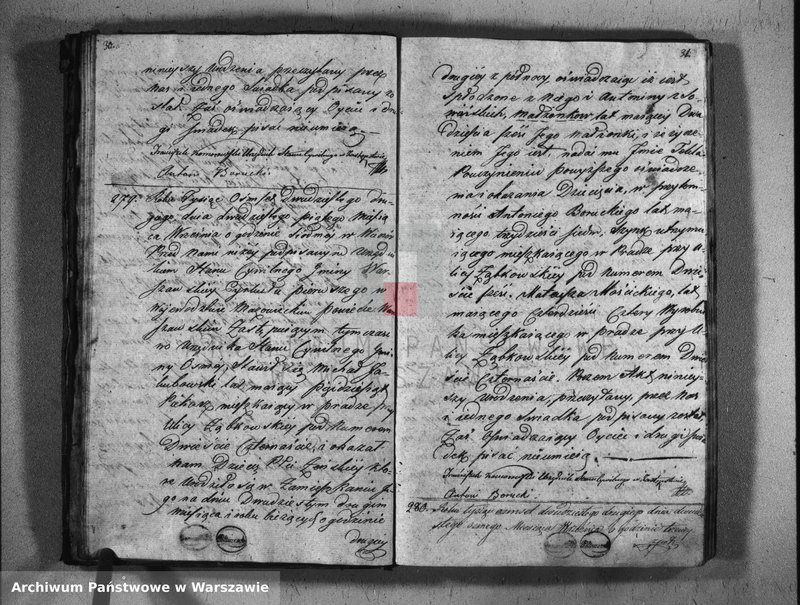 30.
niniejszy Urodzenia przeczytany przez
nas i jednego Świadka podpisany zo
stał. Zaś oświadczający Oyciec i dru
gi Świadek pisać nieumieją.
Antoni Borucki
279. Roku Tysiąc Ośmset Dwudziestego dru
giego dnia dwudziestego piątego Miesią
ca Września o godzinie Siódmej w Wieczór
Przed Nami niżej podpisanym Urzęd
nikiem Stanu Cywilnego Gminy War
szawskiey Cyrkułu pierwszego w
Wojewodztwie Mazowieckim powiecie War
szawskim Zastępującym tymczaso
wo Urzędnika Stanu Cywilnego Gmi
ny Osmej, Stawił się Michał
lat mający pięćdziesiąt
mieszkający w Pradze przy
Ulicy Ząbkowskiey pod Numerem
Dwieście Czternaście, i okazał
nam Dziecię Płci Żeńskiey któ
re urodziło się w Zamieszkaniu Je
go na dniu Dwudziestym drugim
miesiąca i roku bieżących o godzinie
drugiey
31.
drugiey z północy oświadczając iż jest
Spłodzone z Niego i Antoniny z So
Małżonków lat mającey Dwa
dzieścia sześć Jego małżonki, i iż życze
niem Jego jest, nadać mu Jmie Tekla
Po uczynieniu powyższego oświadcze
nia i okazania Dziecięcia, w przytom
ności Antoniego Boruckiego lat ma
jącego trzydzieści siedm, Szynk utrzymu
jącego mieszkającego w Pradze przy u
licy Ząbkowskiey pod Numerem Dwie
ście sześć. Mateusza Mościckiego, lat
mającego Czterdzieści Cztery Wyrobni
ka mieszkającego w Pradze przy U
licy Ząbkowskiey pod Numerem Dwie
ście Czternaście. Poczem Akt niniey
szy Urodzenia, przeczytany przez Nas
i jednego Świadka podpisany został,
Zaś Oświadczający Oyciec i drugi Świa
dek pisać nieumieją.
Antoni Borucki
280. Roku tysiąc osmset dwudziestego drugiego dnia dwudzie
stego osmego Miesiąca Września o godzinie
Archiwum Państwowe w Warszawie